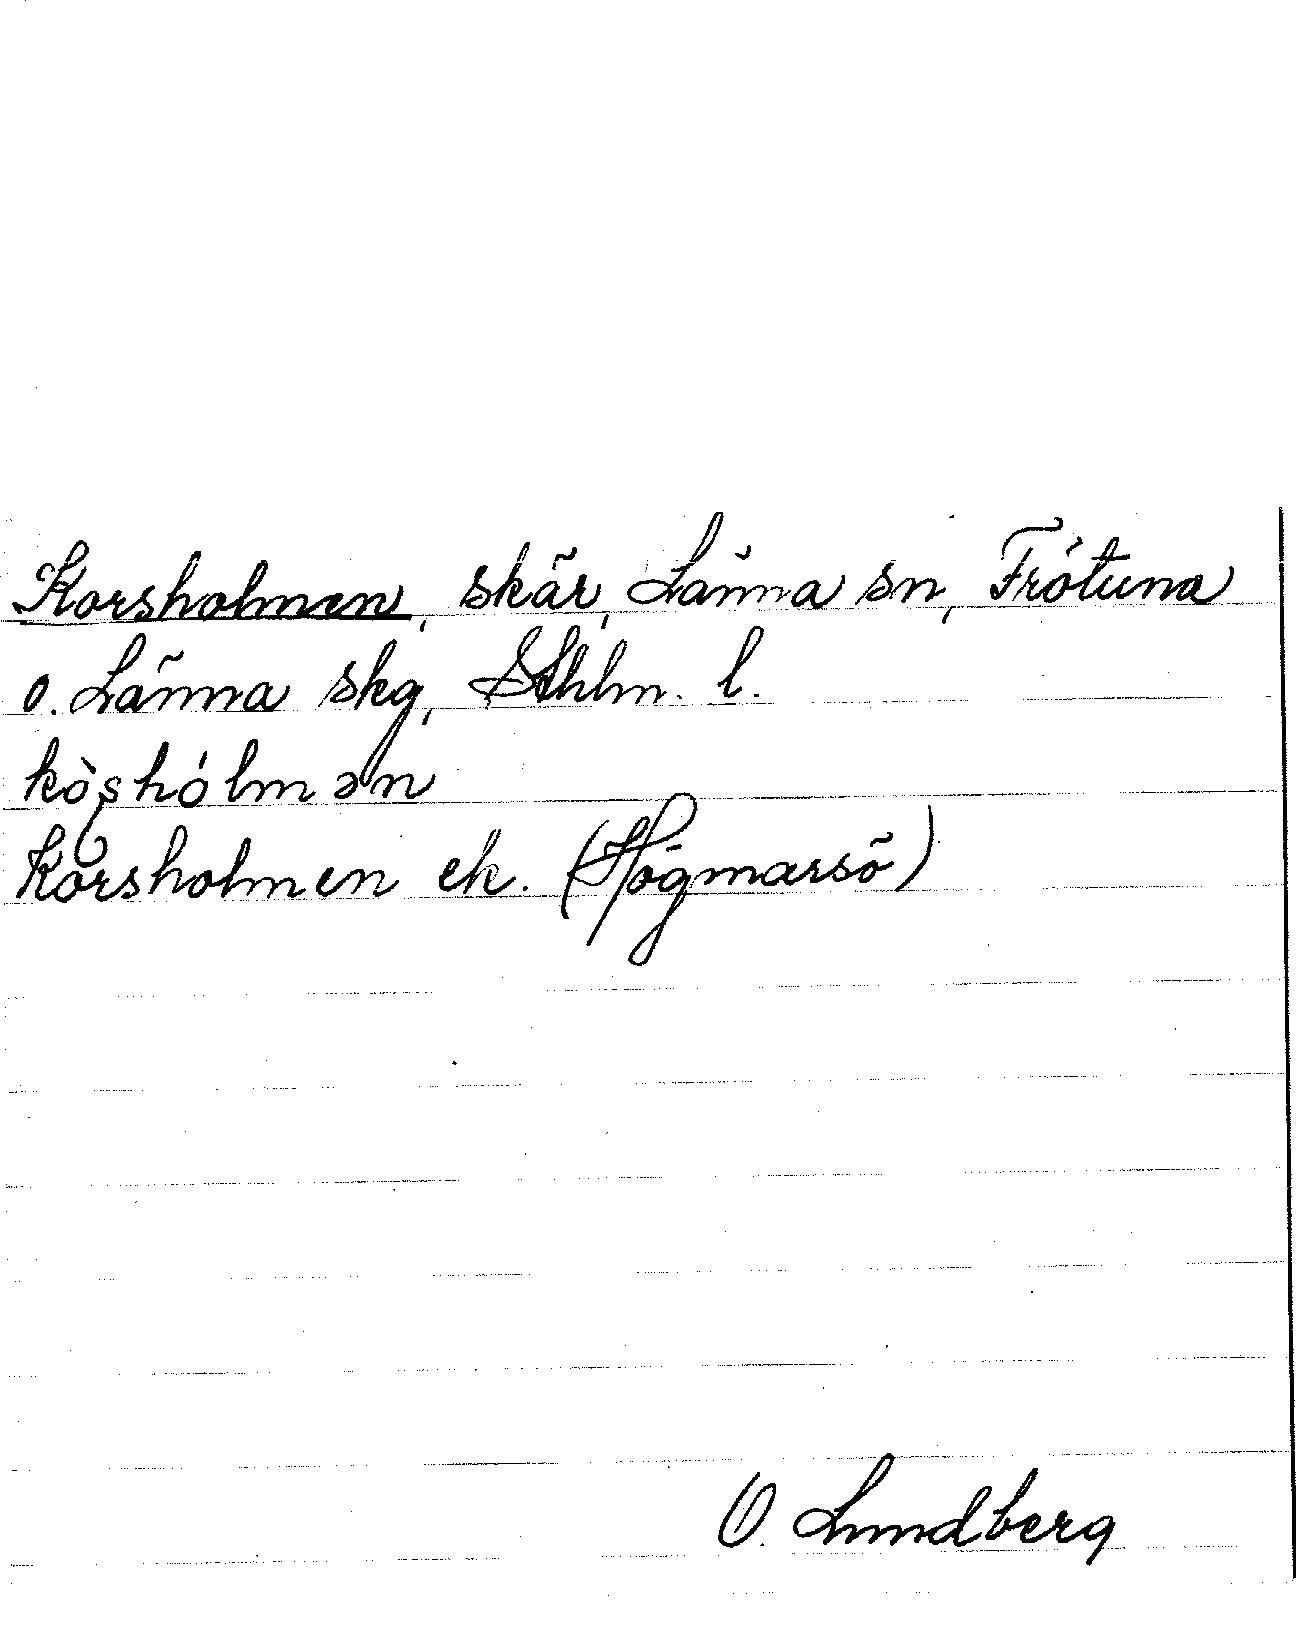 Korsholmen, skär, Länna sn, Frötuna
o. Länna skg, Sthlm. l.
kòshólmən
Korsholmen ek. (Högmarsö)
O. Lundberg